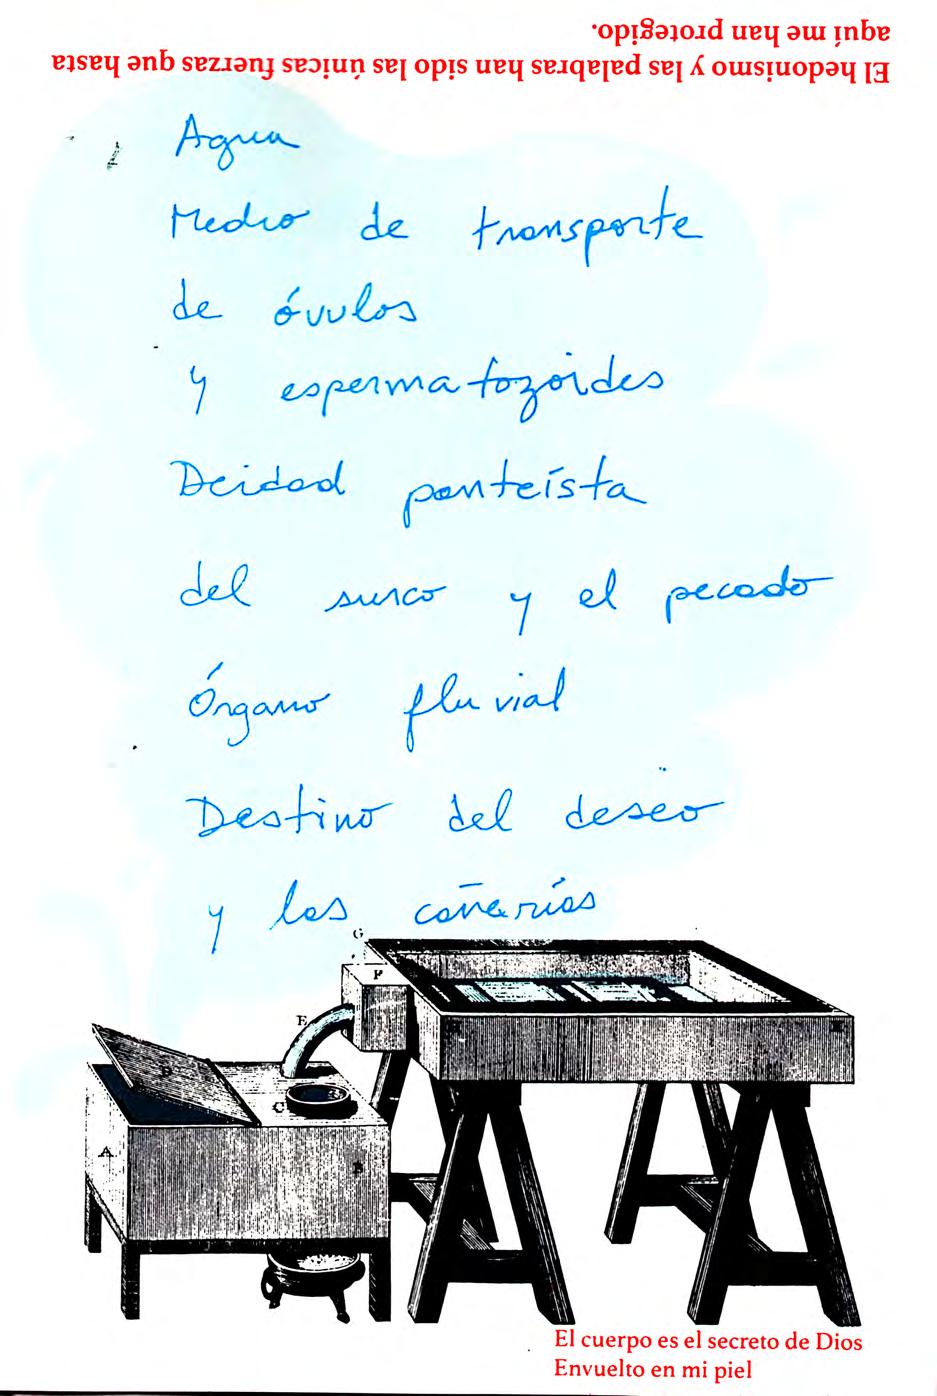 El hedonismo y las palabras han sido las únicas fuerzas que hasta
aquí me han protegido.
Agua
Medio de transporte
de óvulos
y espermatozoides
Deidad panteísta
del surco y el pecado
Órgano fluvial
Destino del deseo
y las cañerías
G
F
E
H
K
D
C
A
B
El cuerpo es el secreto de Dios
Envuelto en mi piel